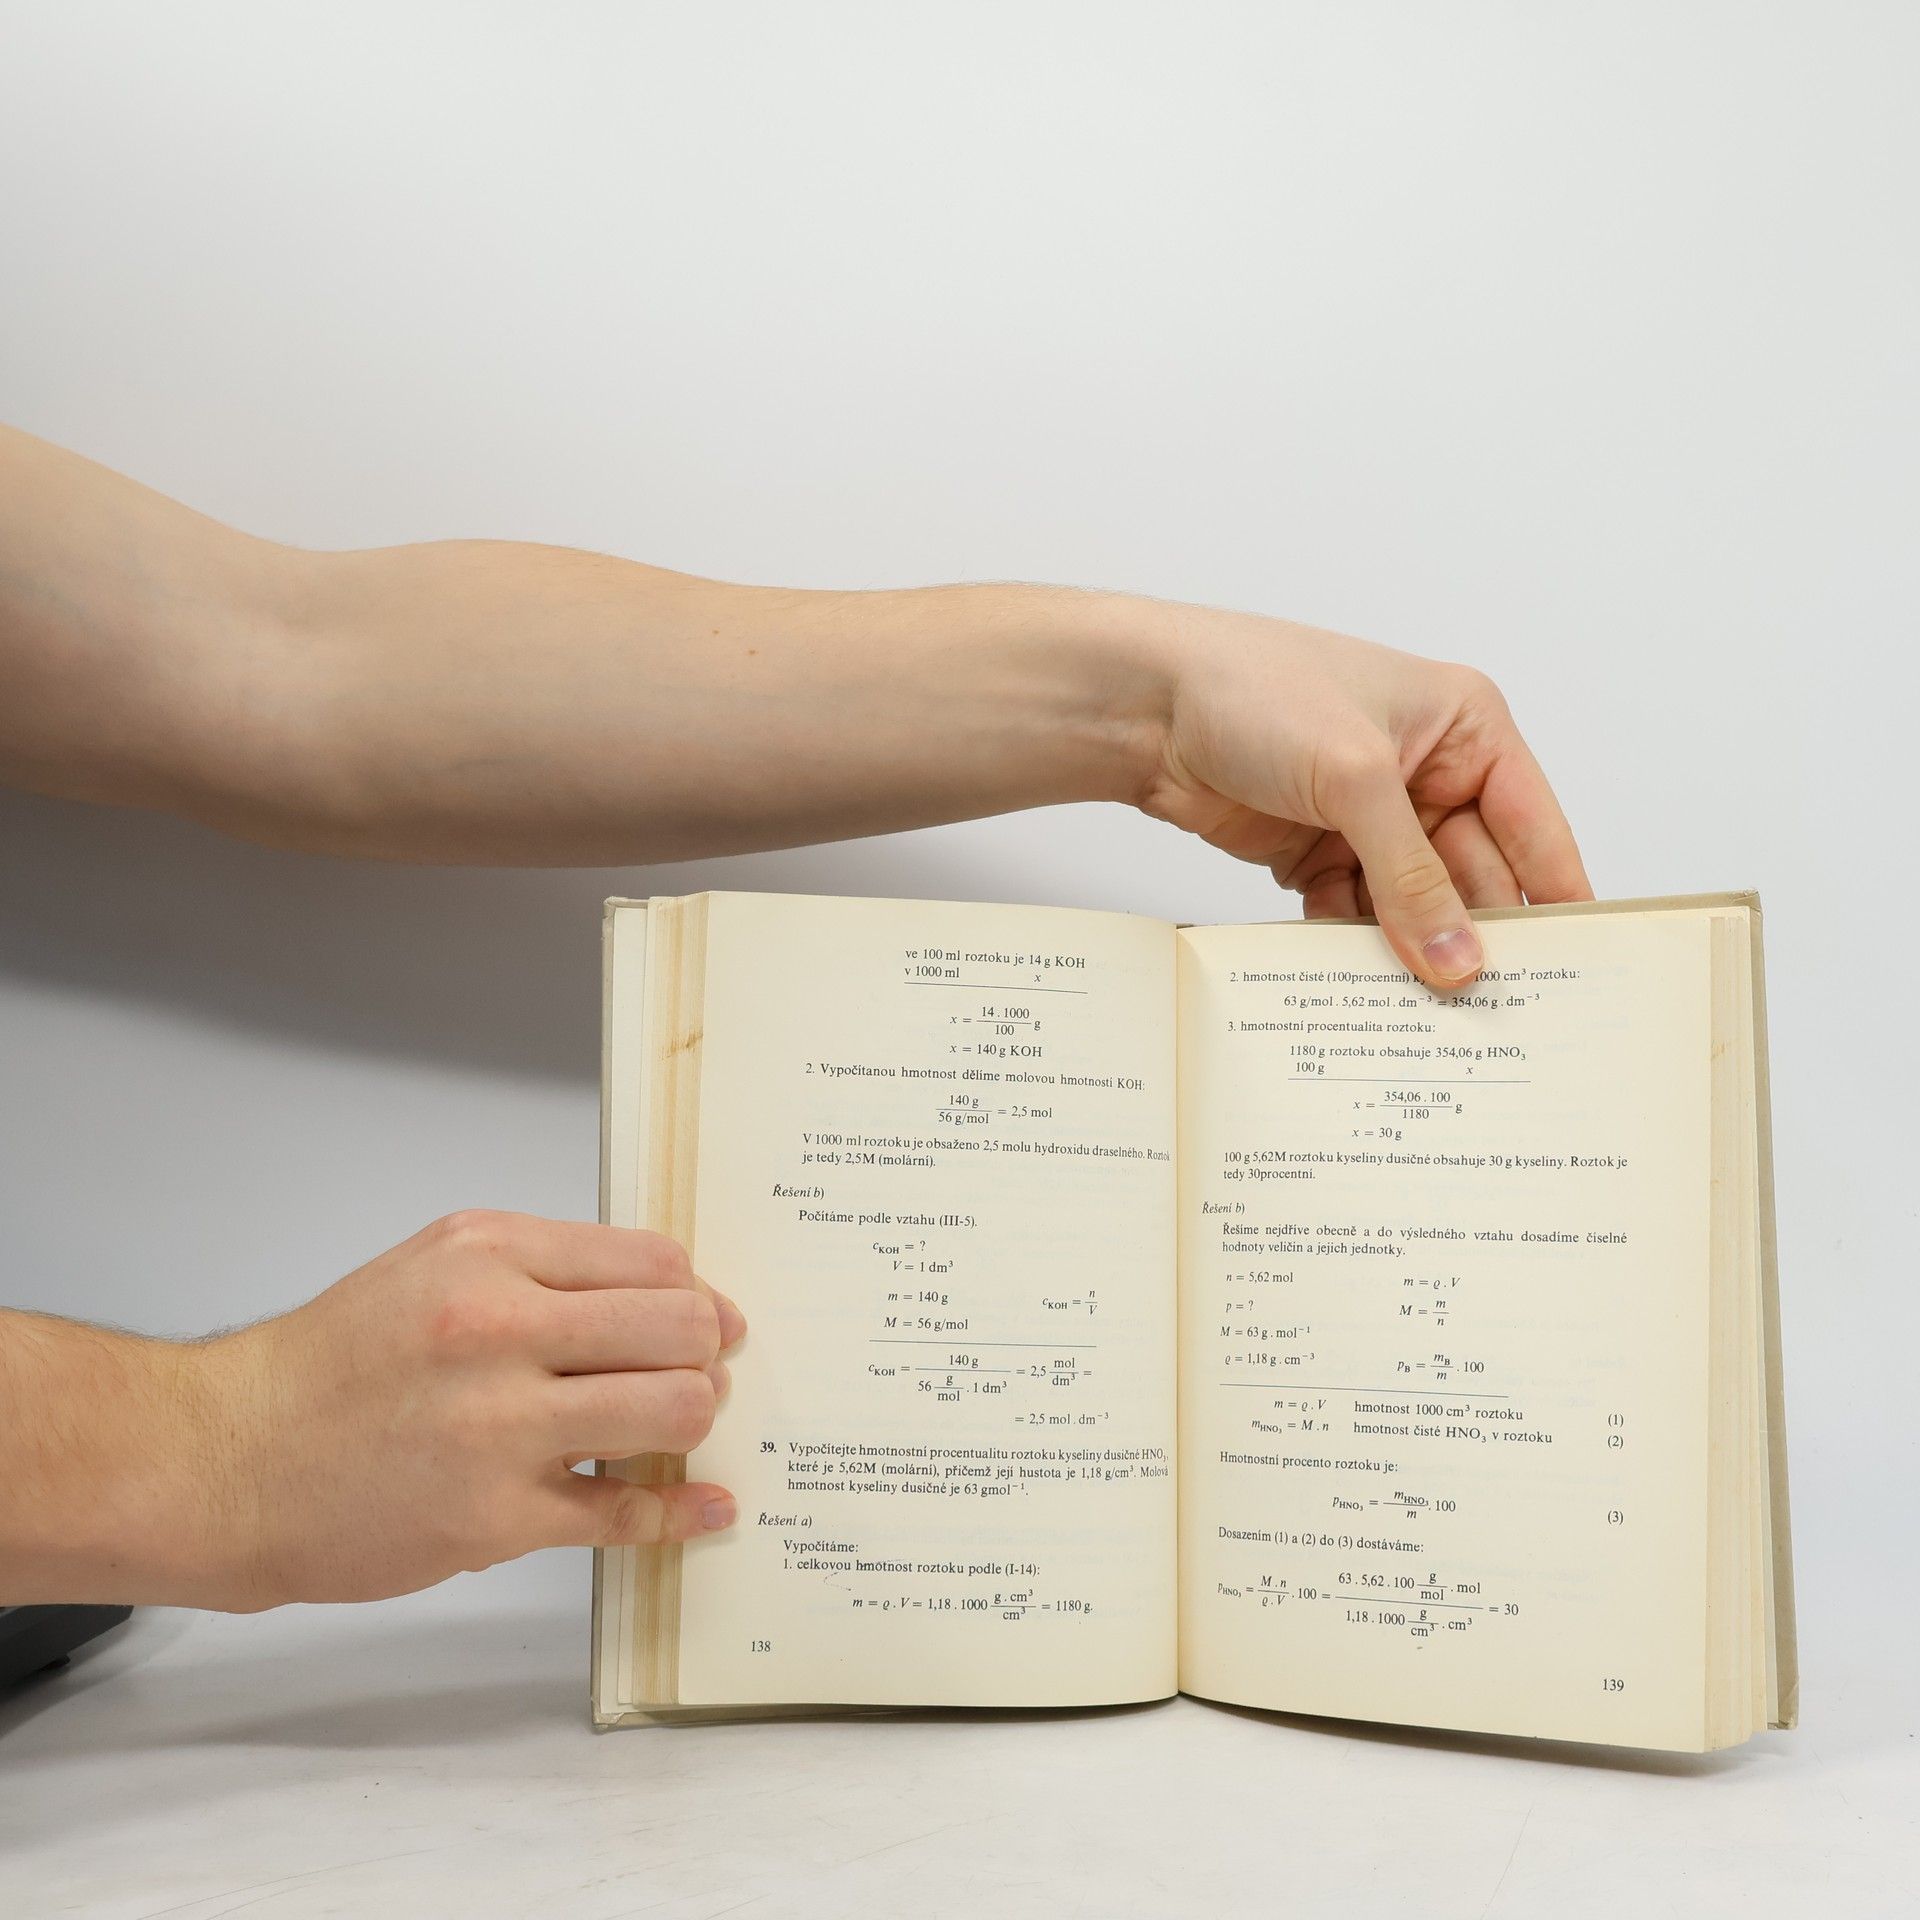 ve 100 ml roztoku je 14 g KOH
v 1000 ml x
x = 14 . 1000 / 100 g
x = 140 g KOH
2. Vypočítanou hmotnost dělíme molovou hmotností KOH:
140 g / 56 g/mol = 2,5 mol
V 1000 ml roztoku je obsaženo 2,5 molu hydroxidu draselného. Roztok
je tedy 2,5M (molární).
Řešení b)
Počítáme podle vztahu (III-5).
cKOH = ?
V = 1 dm³
m = 140 g cKOH = n / V
M = 56 g/mol
cKOH = 140 g / 56 g/mol . 1 dm³ = 2,5 mol / dm³ =
= 2,5 mol . dm⁻³
39. Vypočítejte hmotnostní procentualitu roztoku kyseliny dusičné HNO₃,
které je 5,62M (molární), přičemž její hustota je 1,18 g/cm³. Molová
hmotnost kyseliny dusičné je 63 gmol⁻¹.
Řešení a)
Vypočítáme:
1. celkovou hmotnost roztoku podle (I-14):
m = ϱ . V = 1,18 . 1000 g . cm³ / cm³ = 1180 g.
138
2. hmotnost čisté (100procentní) 1000 cm³ roztoku:
63 g/mol . 5,62 mol . dm⁻³ = 354,06 g . dm⁻³
3. hmotnostní procentualita roztoku:
1180 g roztoku obsahuje 354,06 g HNO₃
100 g x
x = 354,06 . 100 / 1180 g
x = 30 g
100 g 5,62M roztoku kyseliny dusičné obsahuje 30 g kyseliny. Roztok je
tedy 30procentní.
Řešení b)
Řešíme nejdříve obecně a do výsledného vztahu dosadíme číselné
hodnoty veličin a jejich jednotky.
n = 5,62 mol m = ϱ . V
p = ? M = m / n
M = 63 g . mol⁻¹
ϱ = 1,18 g . cm⁻³ pB = mB / m . 100
m = ϱ . V hmotnost 1000 cm³ roztoku (1)
mHNO₃ = M . n hmotnost čisté HNO₃ v roztoku (2)
Hmotnostní procento roztoku je:
pHNO₃ = mHNO₃ / m . 100 (3)
Dosazením (1) a (2) do (3) dostáváme:
pHNO₃ = M . n / ϱ . V . 100 = 63 . 5,62 . 100 g/mol . mol / 1,18 . 1000 g/cm³ . cm³ = 30
139